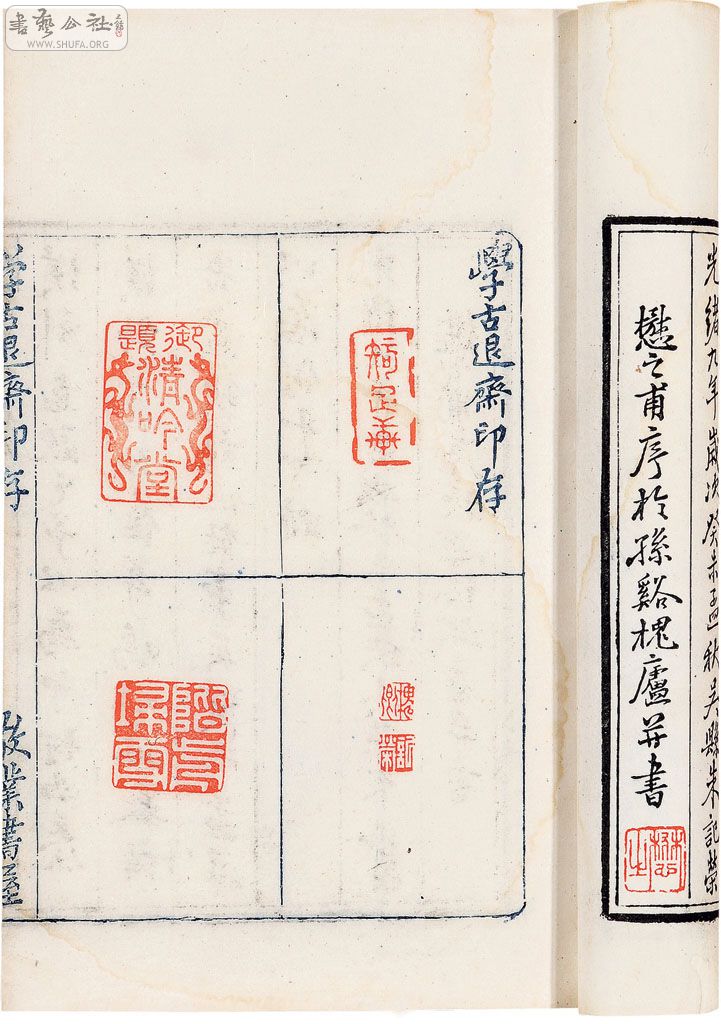 書藝公社
WWW.SHUFA.ORG
光緒九年歲次癸未孟秋吳縣朱記榮
懋之甫序於孫谿槐廬并書
學古退齋印存
御題
清吟堂
學古退齋印存